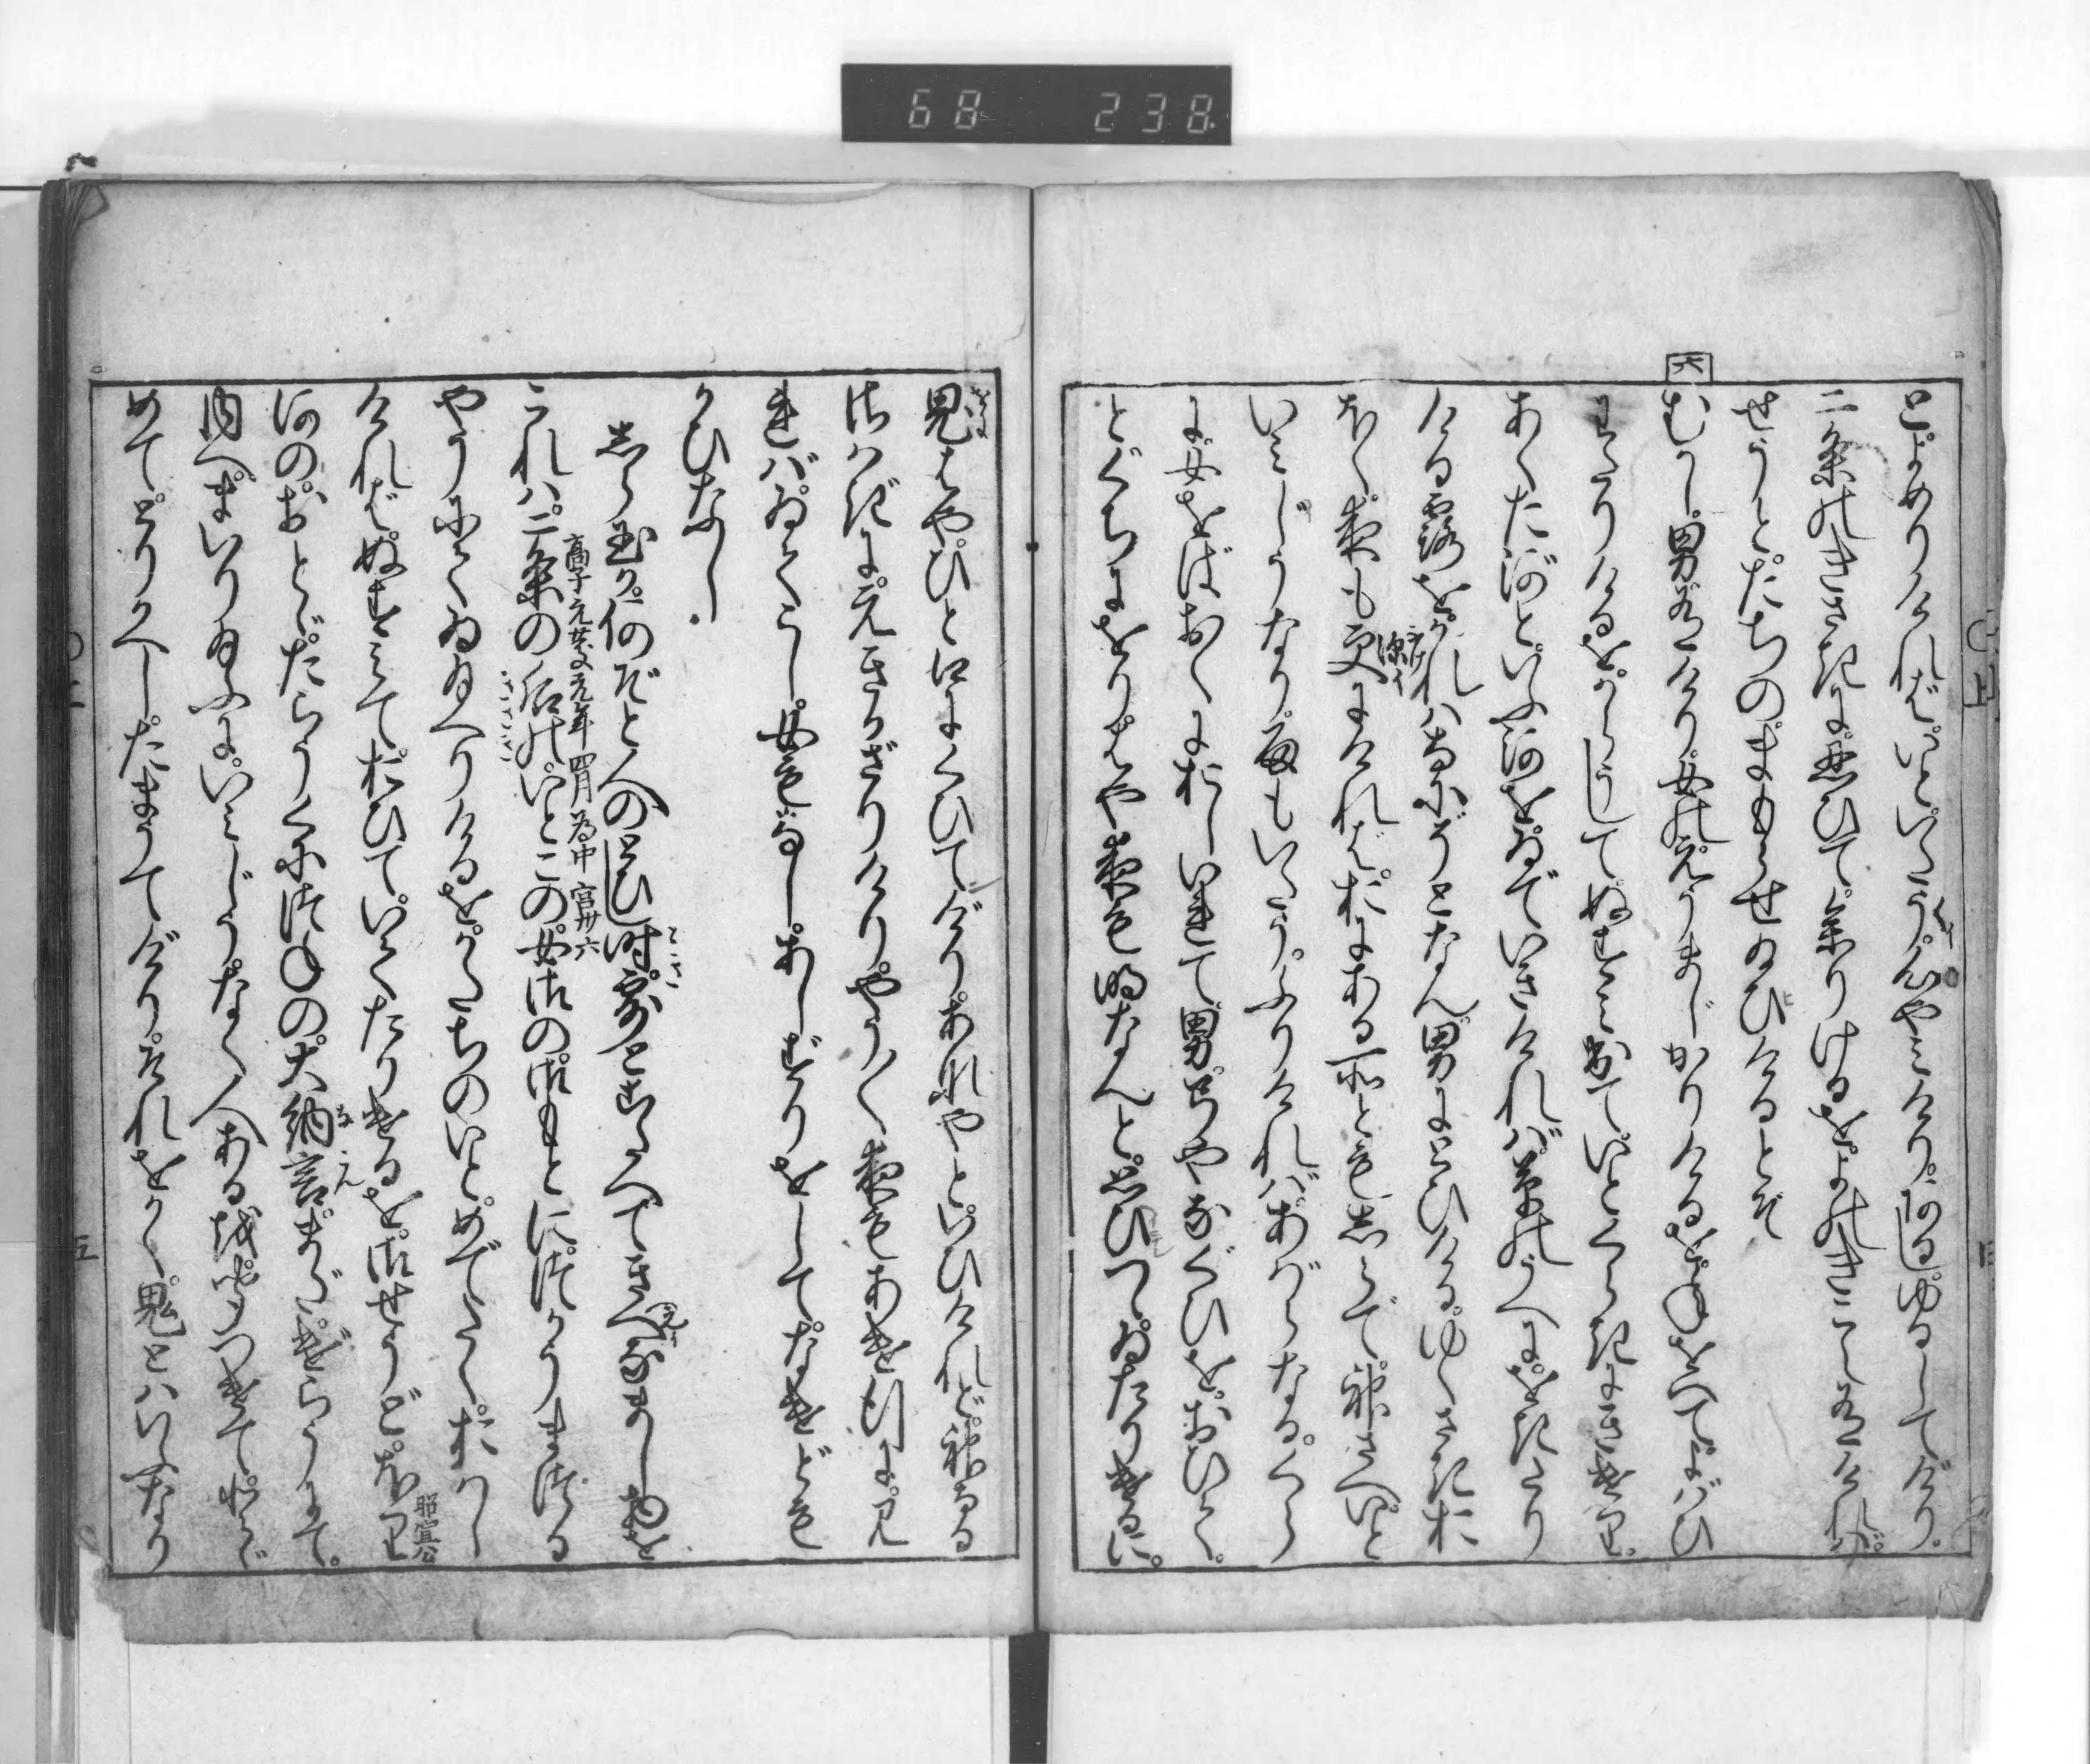 68 238
とよめりければ。いといたう。心やみけり。あるじ。ゆるしてげり。
二条のきさきに。忍びて。参りけるを。よのきこえありければ。
せうと。たちの。まもらせ給ひけるとぞ
六
むかし。男有けり。女の。えうまじかりけるを。年をへて。よばひ
わたりけるを。からうじて。ぬすみ出て。いとくらきに。きけり。
あくた河と。いふ河を。ゐていきければ。草のうへに。をきたり
ける露を。かれはなにぞ。となん。男に。とひける。ゆくさきお
ほく。夜も更にければ。おにある所とも。しらで。神さへ。いと
いみじうなり。雨も。いたう。ふりければ。あばらなる。くら
に。女をば。おくにおしいれて。男。弓やなぐひを。おひて。
とぐちにをり。はや夜も明なんと。思ひつゝ。ゐたりけるに。
鬼はや。ひと口に。くひてげり。あなやと。いひけれど。神なる
さはぎに。えきかざりけり。やう〳〵夜も。あけ行に。見
れば。ゐてこし。女もなし。あしずりをして。なけども
かひなし。
しら玉か。何ぞと人の。とひし時。露とこたへて。きえなまし物を
高子元慶元年四月為中宮卅六
これは。二条の后の。いとこの女御の。御もとに。つかうまつる
やうにて。ゐ給へりけるを。かたちのいと。めでたく。おはし
ければ。ぬすみて。おひて。いでたりけるを。御せうど。ほり
昭宣公
河のおとゞ。たらうくにつねの。大納言。まだ。げらうにて。
内へ。まいり給ふに。いみじう。なく。人あるを。きゝつけて。とゞ
めて。とりかへし。たまうてげり。それを。かく。鬼とはいふなり